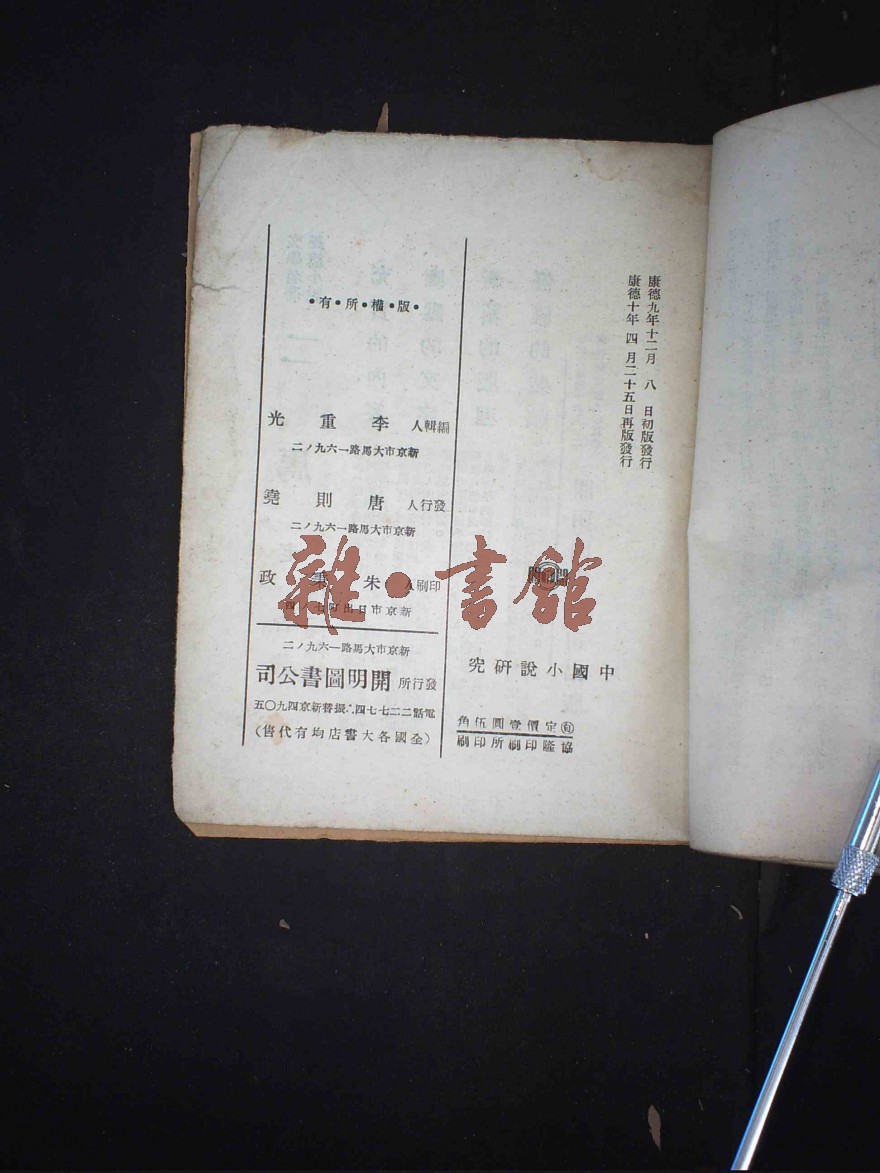 康德九年十二月八日初版發行
康德十年四月二十五日再版發行
中國小說研究
㊒定價壹圓伍角
協隆印刷所印刷
•版•權•所•有•
編輯人 李重光
新京市大馬路一六九ノ二
發行人 唐則堯
新京市大馬路一六九ノ二
印刷人 朱 政
新京市日出町七ノ四
新京市大馬路一六九ノ二
發行所 開明圖書公司
電話二二七七四・振替新京四九〇五
(全國各大書店均有代售)
雜•書館